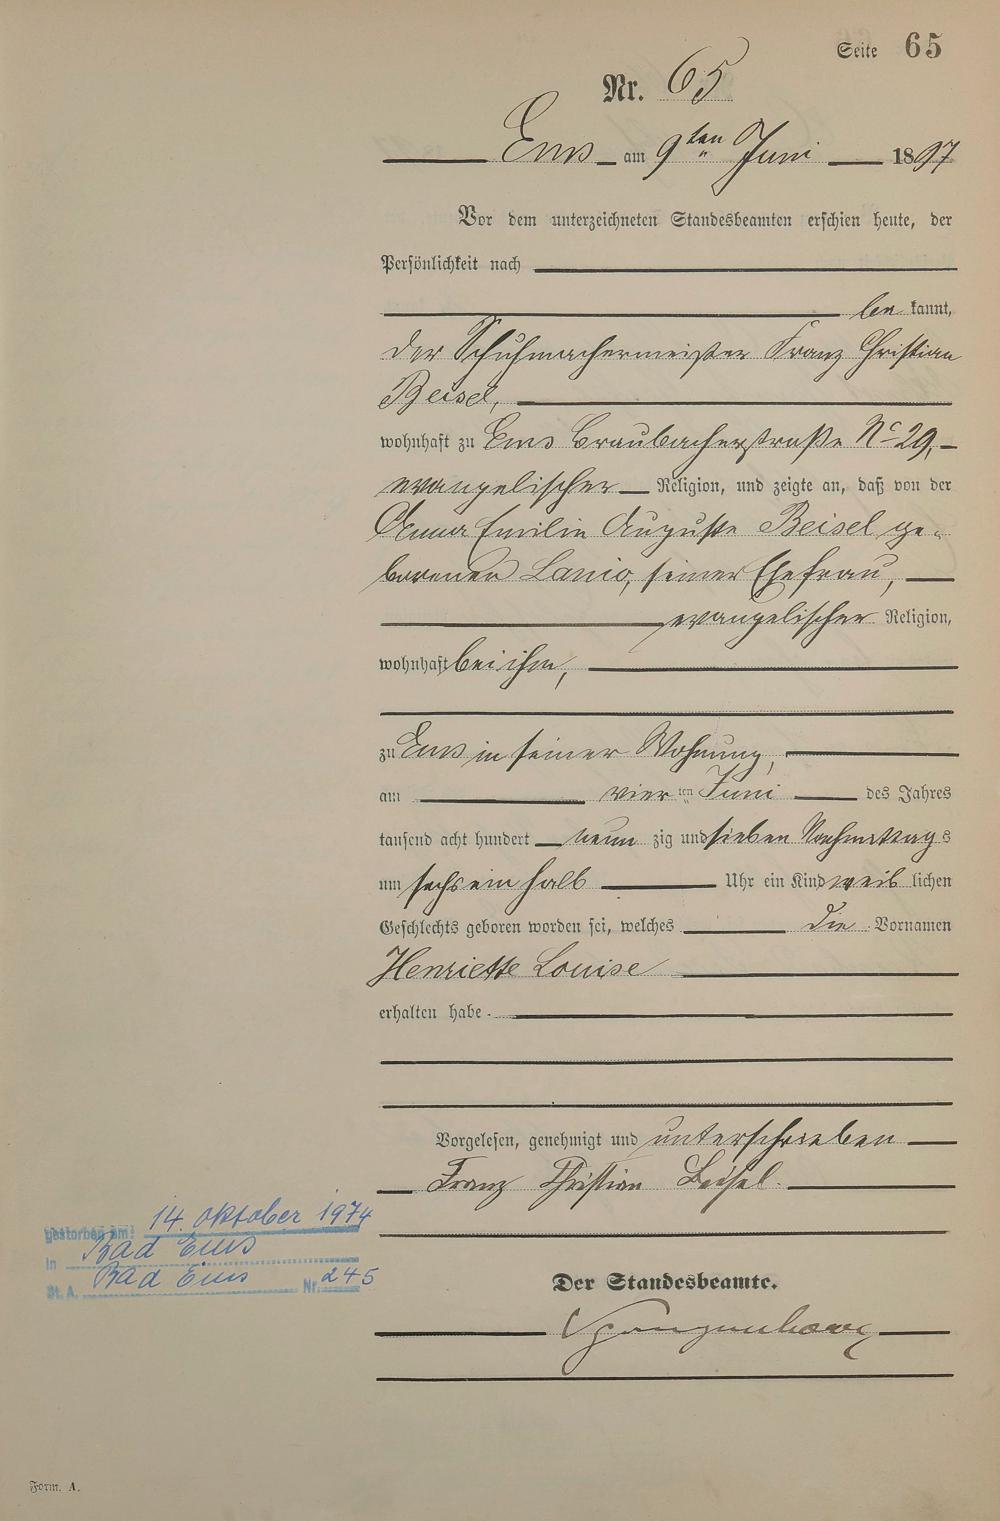 Seite 65
Nr. 65
Ems am 9ten Juni 1897
Vor dem unterzeichneten Standesbeamten erschien heute, der
Persönlichkeit nach
be kannt,
der Schuhmachermeister Franz Christian
Beisel,
wohnhaft zu Ems Braubacherstraße No 29,
evangelischer Religion, und zeigte an, daß von der
Anna Emilie Auguste Beisel ge-
borenen Lanio, seiner Ehefrau,
evangelischer Religion,
wohnhaft bei ihm,
zu Ems in seiner Wohnung,
am vier ten Juni des Jahres
tausend acht hundert neun zig und sieben Nachmittag s
um sechs ein halb Uhr ein Kind weib lichen
Geschlechts geboren worden sei, welches die Vornamen
Henriette Louise
erhalten habe.
Vorgelesen, genehmigt und unterschrieben
Franz Christian Beisel.
gestorben am: 14. Oktober 1974
in Bad Ems
St. A. Bad Ems Nr. 245
Der Standesbeamte.
Form. A.